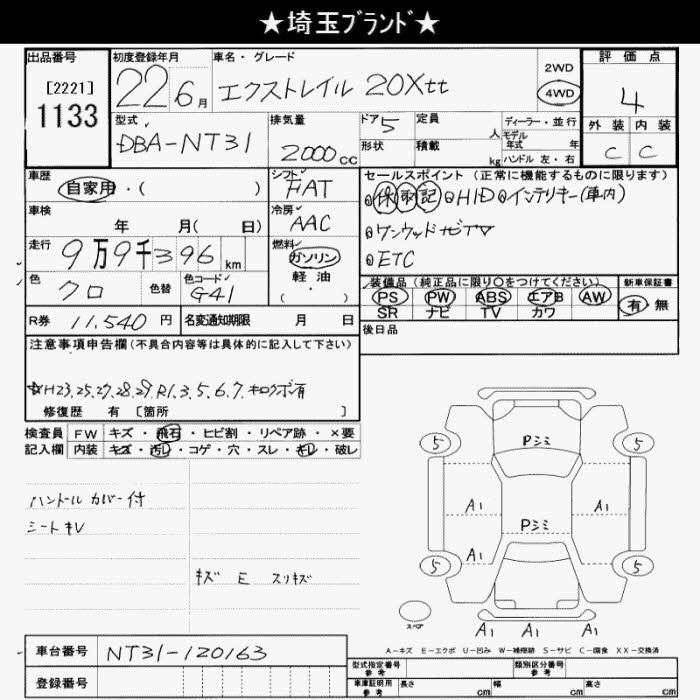 ★埼玉ブランド★
出品番号
[2221]
1133
初度登録年月
22 6月
車名・グレード
エクストレイル 20Xtt
2WD
4WD
評価点
4
外装 内装
C C
型式
DBA-NT31
排気量
2000cc
ドア 5
定員
人
形状
積載
kg
ディーラー・並行
モデル年式 年
ハンドル 左・右
車歴
自家用・( )
シフト
FAT
車検
年 月( 日)
冷房
AAC
走行
9万9千396km
燃料
ガソリン
軽油
( ・ )
色
クロ
色替
色コード
G41
セールスポイント(正常に機能するものに限ります)
保 取 記 HID インテリキー(車内)
ケンウッドナビTV
ETC
装備品(純正品に限り○をつけてください)
PS PW ABS エアB AW
SR ナビ TV カワ
新車保証書
有・無
R券 11,540円
名変通知期限 月 日
後日品
注意事項申告欄(不具合内容等は具体的に記入して下さい)
☆H23,25,27,28,29,R1,3,5,6,7,キロクボ有
修復歴 有 [箇所 ]
検査員 記入欄
FW キズ・飛石・ヒビ割・リペア跡・×要
内装 キズ・汚し・コゲ・穴・スレ・キレ・破レ
ハンドルカバー付
シートキレ
キズ E スリキズ
Pシミ
5 5
A1 A1
Pシミ
A1
5 5
スペア
A1 A1 A1
A-キズ E-エクボ U-凹み W-補修跡 S-サビ C-腐食 XX-交換済
車台番号 NT31-120163
登録番号
型式指定番号 参考
類別区分番号 参考
車庫証明用 参考
長さ cm 幅 cm 高さ cm